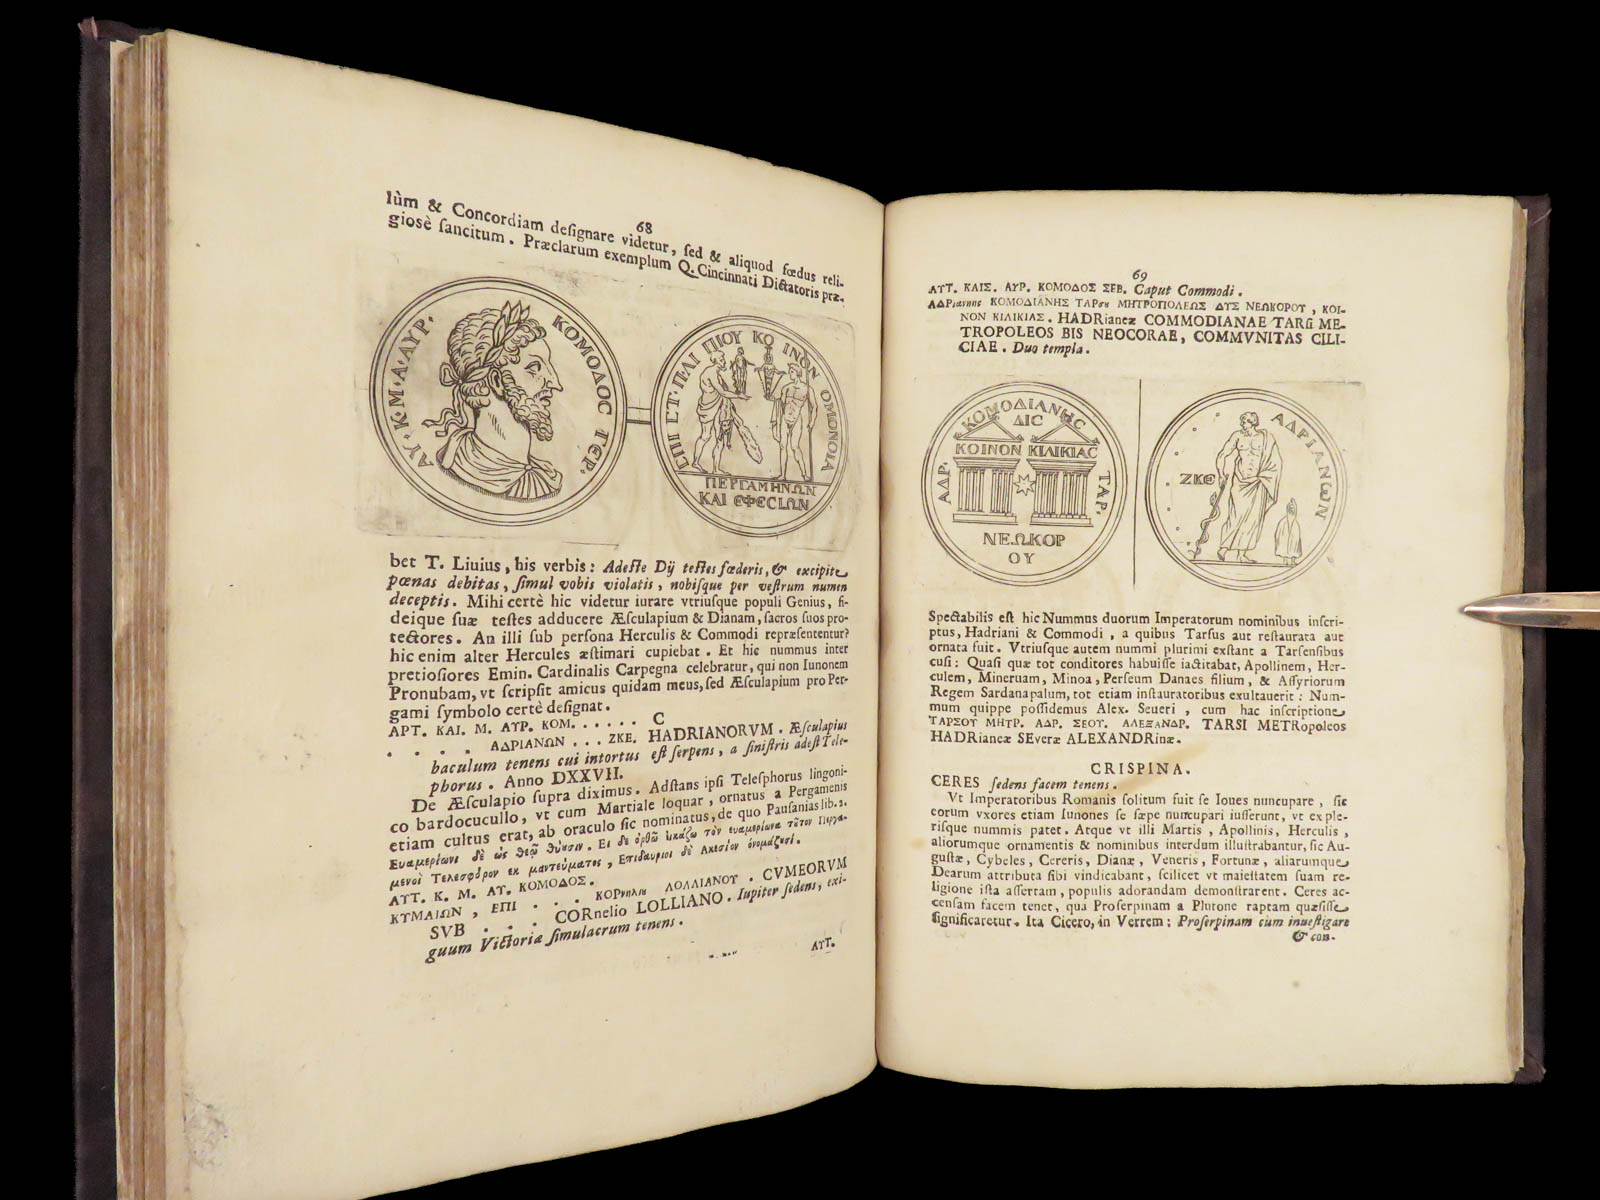 68
lùm & Concordiam deſignare videtur, ſed & aliquod fœdus reli-
gioſè ſancitum. Præclarum exemplum Q. Cincinnati Dictatoris præ-
ΑΥ·Κ·Μ·Α·ΑΥΡ·
ΚΟΜΟΔΟC ΤΕΡ.
ΕΠΙ СΤ·ΠΛΙ ΠΙΟΥ ΚΟ ΙΝΟΝ ΟΜΟΝΟΙΑ
ΠΕΡΓΑΜΗΝΩΝ
ΚΑΙ ЄΦЄCΙΩΝ
bet T. Liuius, his verbis: Adeſte Dij teſtes fœderis, & excipite
pœnas debitas, ſimul vobis violatis, nobiſque per veſtrum numen
deceptis. Mihi certè hic videtur iurare vtriuſque populi Genius, fi-
deique ſuæ teſtes adducere Æſculapium & Dianam, ſacros ſuos pro-
tectores. An illi ſub perſona Herculis & Commodi repræſententur?
hic enim alter Hercules æſtimari cupiebat. Et hic nummus inter
pretioſiores Emin. Cardinalis Carpegna celebratur, qui non Iunonem
Pronubam, vt ſcripſit amicus quidam meus, ſed Æſculapium pro Per-
gami ſymbolo certè deſignat.
ΑΡΤ. ΚΑΙ. Μ. ΑΥΡ. ΚΟΜ. . . . . . C
. . . . ΑΔΡΙΑΝΩΝ . . . ΖΚΕ. HADRIANORVM. Æſculapius
baculum tenens cui intortus eſt ſerpens, a ſiniſtris adeſt Tele-
phorus. Anno DXXVII.
De Æſculapio ſupra diximus. Adſtans ipſi Teleſphorus lingoni-
co bardocucullo, vt cum Martiale loquar, ornatus a Pergamenis
etiam cultus erat, ab oraculo ſic nominatus, de quo Pauſanias lib. 2.
Ευαμερίωνι δὲ ὡς θεῷ θύυσιν. Ει δε ὀρθῶ ἱικάζω τὸν ευαμερίωνα τῦτον Περγα-
μενοὶ Τελεσφόρον εκ μαντεύματος, Επιδαυριοι δὲ Ακεσίον ὀνομάζυσι.
ΑΥΤ. Κ. Μ. ΑΥ. ΚΟΜΟΔΟΣ.
ΚΥΜΑΙΩΝ, ΕΠΙ . . . ΚΟΡνηλιυ ΛΟΛΛΙΑΝΟΥ. CVMEORVM
SVB . . . CORnelio LOLLIANO. Iupiter ſedens, exi-
guum Victoriæ ſimulacrum tenens.
ΑΥΤ.
69
ΑΥΤ. ΚΑΙΣ. ΑΥΡ. ΚΟΜΟΔΟΣ ΣΕΒ. Caput Commodi.
ΑΔΡιανης ΚΟΜΟΔΙΑΝΗΣ ΤΑΡσυ ΜΗΤΡΟΠΟΛΕΩΣ ΔΥΣ ΝΕΩΚΟΡΟΥ, ΚΟΙ-
ΝΟΝ ΚΙΛΙΚΙΑΣ. HADRianeæ COMMODIANAE TARſi ME-
TROPOLEOS BIS NEOCORAE, COMMVNITAS CILI-
CIAE. Duo templa.
ΚΟΜΟΔΙΑΝΗC
ΔΙC
ΚΟΙΝΟΝ ΚΙΛΙΚΙΑC
ΑΔΡ.
ΤΑΡ.
ΝΕΩΚΟΡ
ΟΥ
ΑΔΡΙΑΝΩΝ
ΖΚЄ
Spectabilis eſt hic Nummus duorum Imperatorum nominibus inſcri-
ptus, Hadriani & Commodi, a quibus Tarſus aut reſtaurata aut
ornata fuit. Vtriuſque autem nummi plurimi exſtant a Tarſenſibus
cuſi: Quaſi quæ tot conditores habuiſſe iactitabat, Apollinem, Her-
culem, Mineruam, Minoa, Perſeum Danaes filium, & Aſſyriorum
Regem Sardanapalum, tot etiam inſtauratoribus exultauerit: Num-
mum quippe poſſidemus Alex. Seueri, cum hac inſcriptione
ΤΑΡΣΟΥ ΜΗΤΡ. ΑΔΡ. ΣΕΟΥ. ΑΛΕΞΑΝΔΡ. TARSI METRopoleos
HADRianeæ SEveræ ALEXANDRinæ.
CRISPINA.
CERES ſedens facem tenens.
Vt Imperatoribus Romanis ſolitum fuit ſe Iones nuncupare, ſic
eorum vxores etiam Iunones ſe ſæpe nuncupari iuſſerunt, vt ex ple-
riſque nummis patet. Atque vt illi Martis, Apollinis, Herculis,
aliorumque ornamentis & nominibus interdum illuſtrabantur, ſic Au-
guſtæ, Cybeles, Cereris, Dianæ, Veneris, Fortunæ, aliarumque
Dearum attributa ſibi vindicabant, ſcilicet vt maieſtatem ſuam re-
ligione iſta aſſertam, populis adorandam demonſtrarent. Ceres ac-
cenſam facem tenet, qua Proſerpinam a Plutone raptam quæſiſſe
ſignificaretur. Ita Cicero, in Verrem: Proſerpinam cùm inueſtigare
& con-